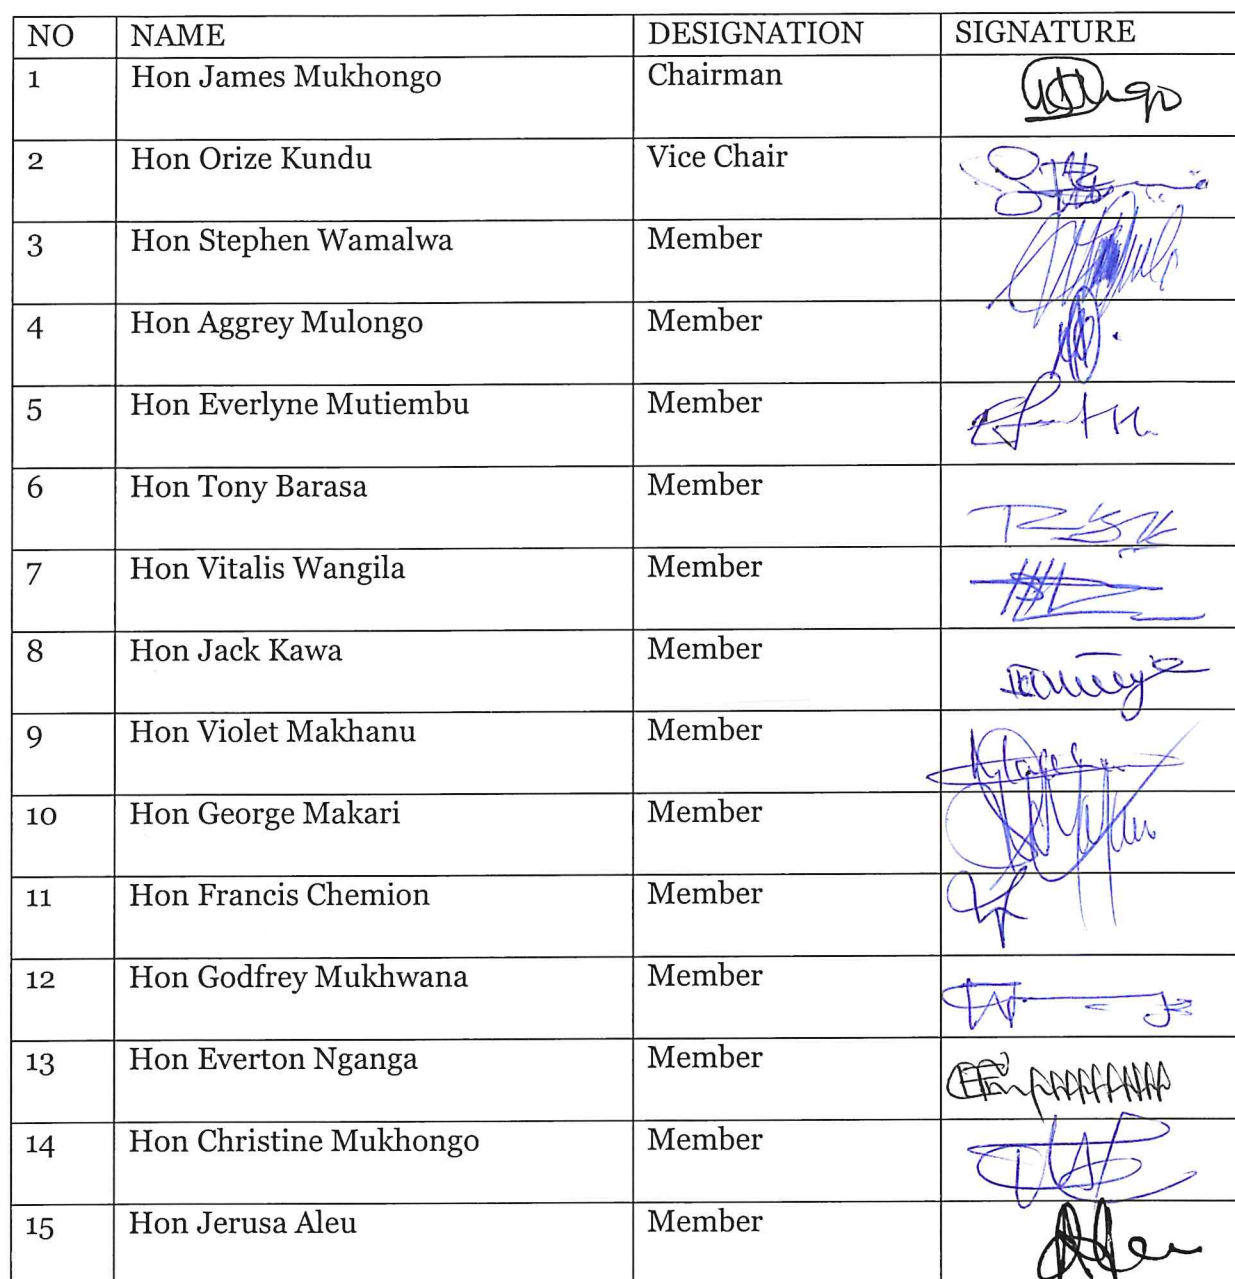 NO NAME DESIGNATION SIGNATURE
1 Hon James Mukhongo Chairman
2 Hon Orize Kundu Vice Chair
3 Hon Stephen Wamalwa Member
4 Hon Aggrey Mulongo Member
5 Hon Everlyne Mutiembu Member
6 Hon Tony Barasa Member
7 Hon Vitalis Wangila Member
8 Hon Jack Kawa Member
9 Hon Violet Makhanu Member
10 Hon George Makari Member
11 Hon Francis Chemion Member
12 Hon Godfrey Mukhwana Member
13 Hon Everton Nganga Member
14 Hon Christine Mukhongo Member
15 Hon Jerusa Aleu Member